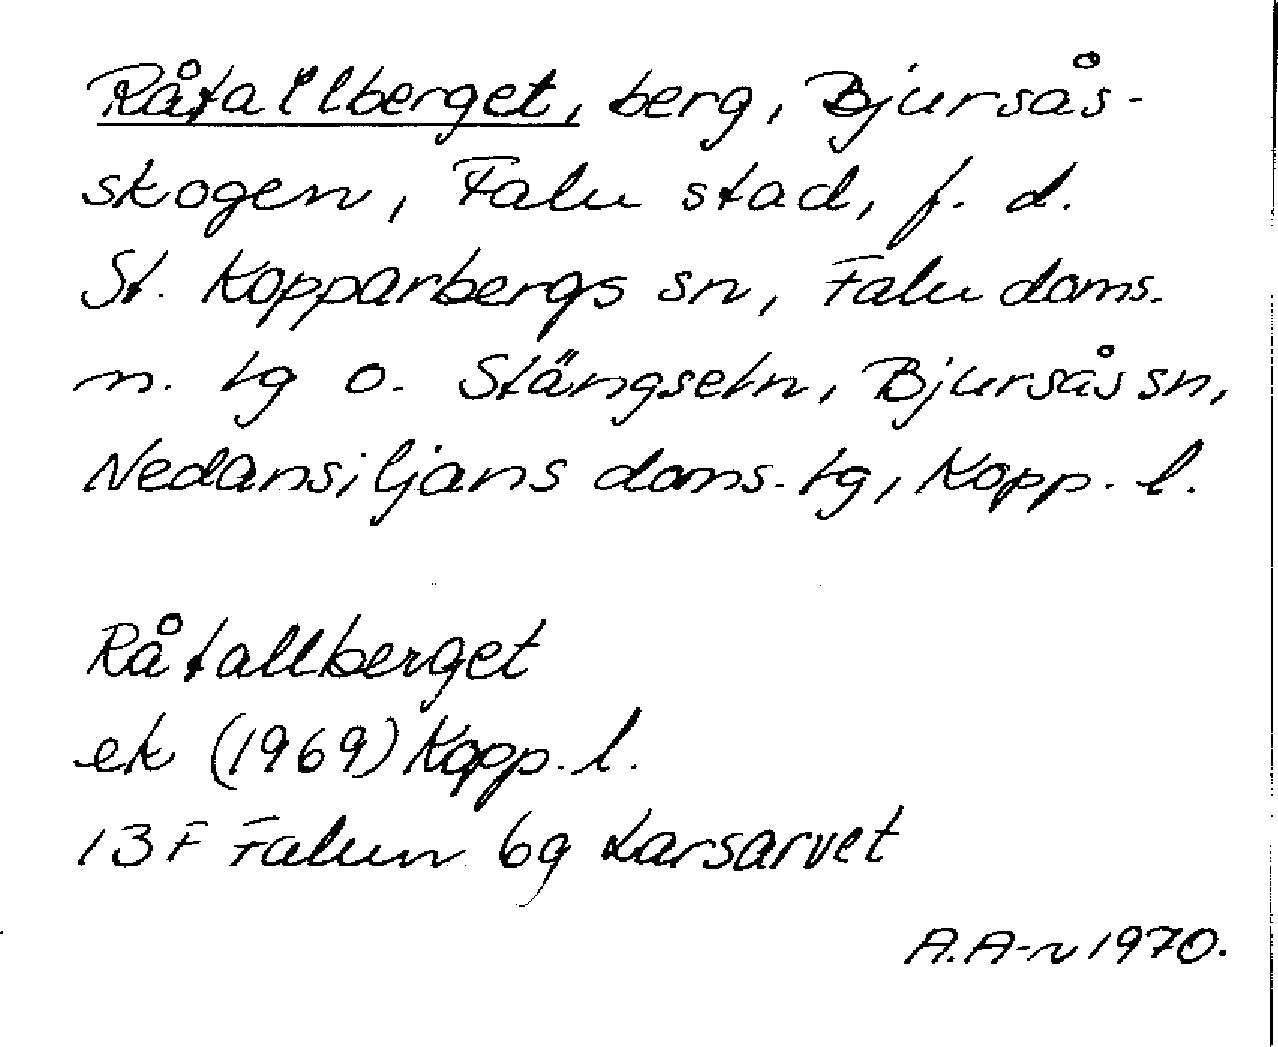 Råtallberget, berg, Bjursås-
skogen, Falu stad, f. d.
St. Kopparbergs sn, Falu doms.
n. tg o. Stängseln, Bjursås sn,
Nedansiljans doms. tg, Kopp. l.
Råtallberget
ek (1969) Kopp. l.
13F Falun 6g Larsarvet
A. A-n 1970.